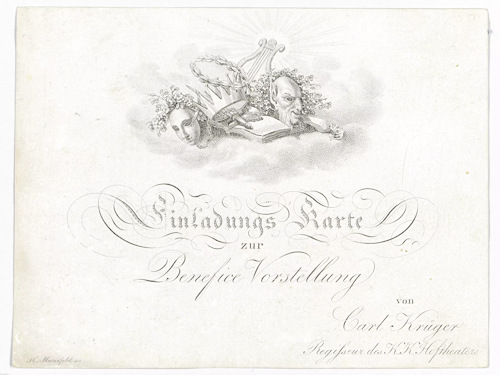 Einladungs Karte
zur
Benefice Vorstellung
von
Carl Krüger
Regesseur des K.K. Hoftheaters